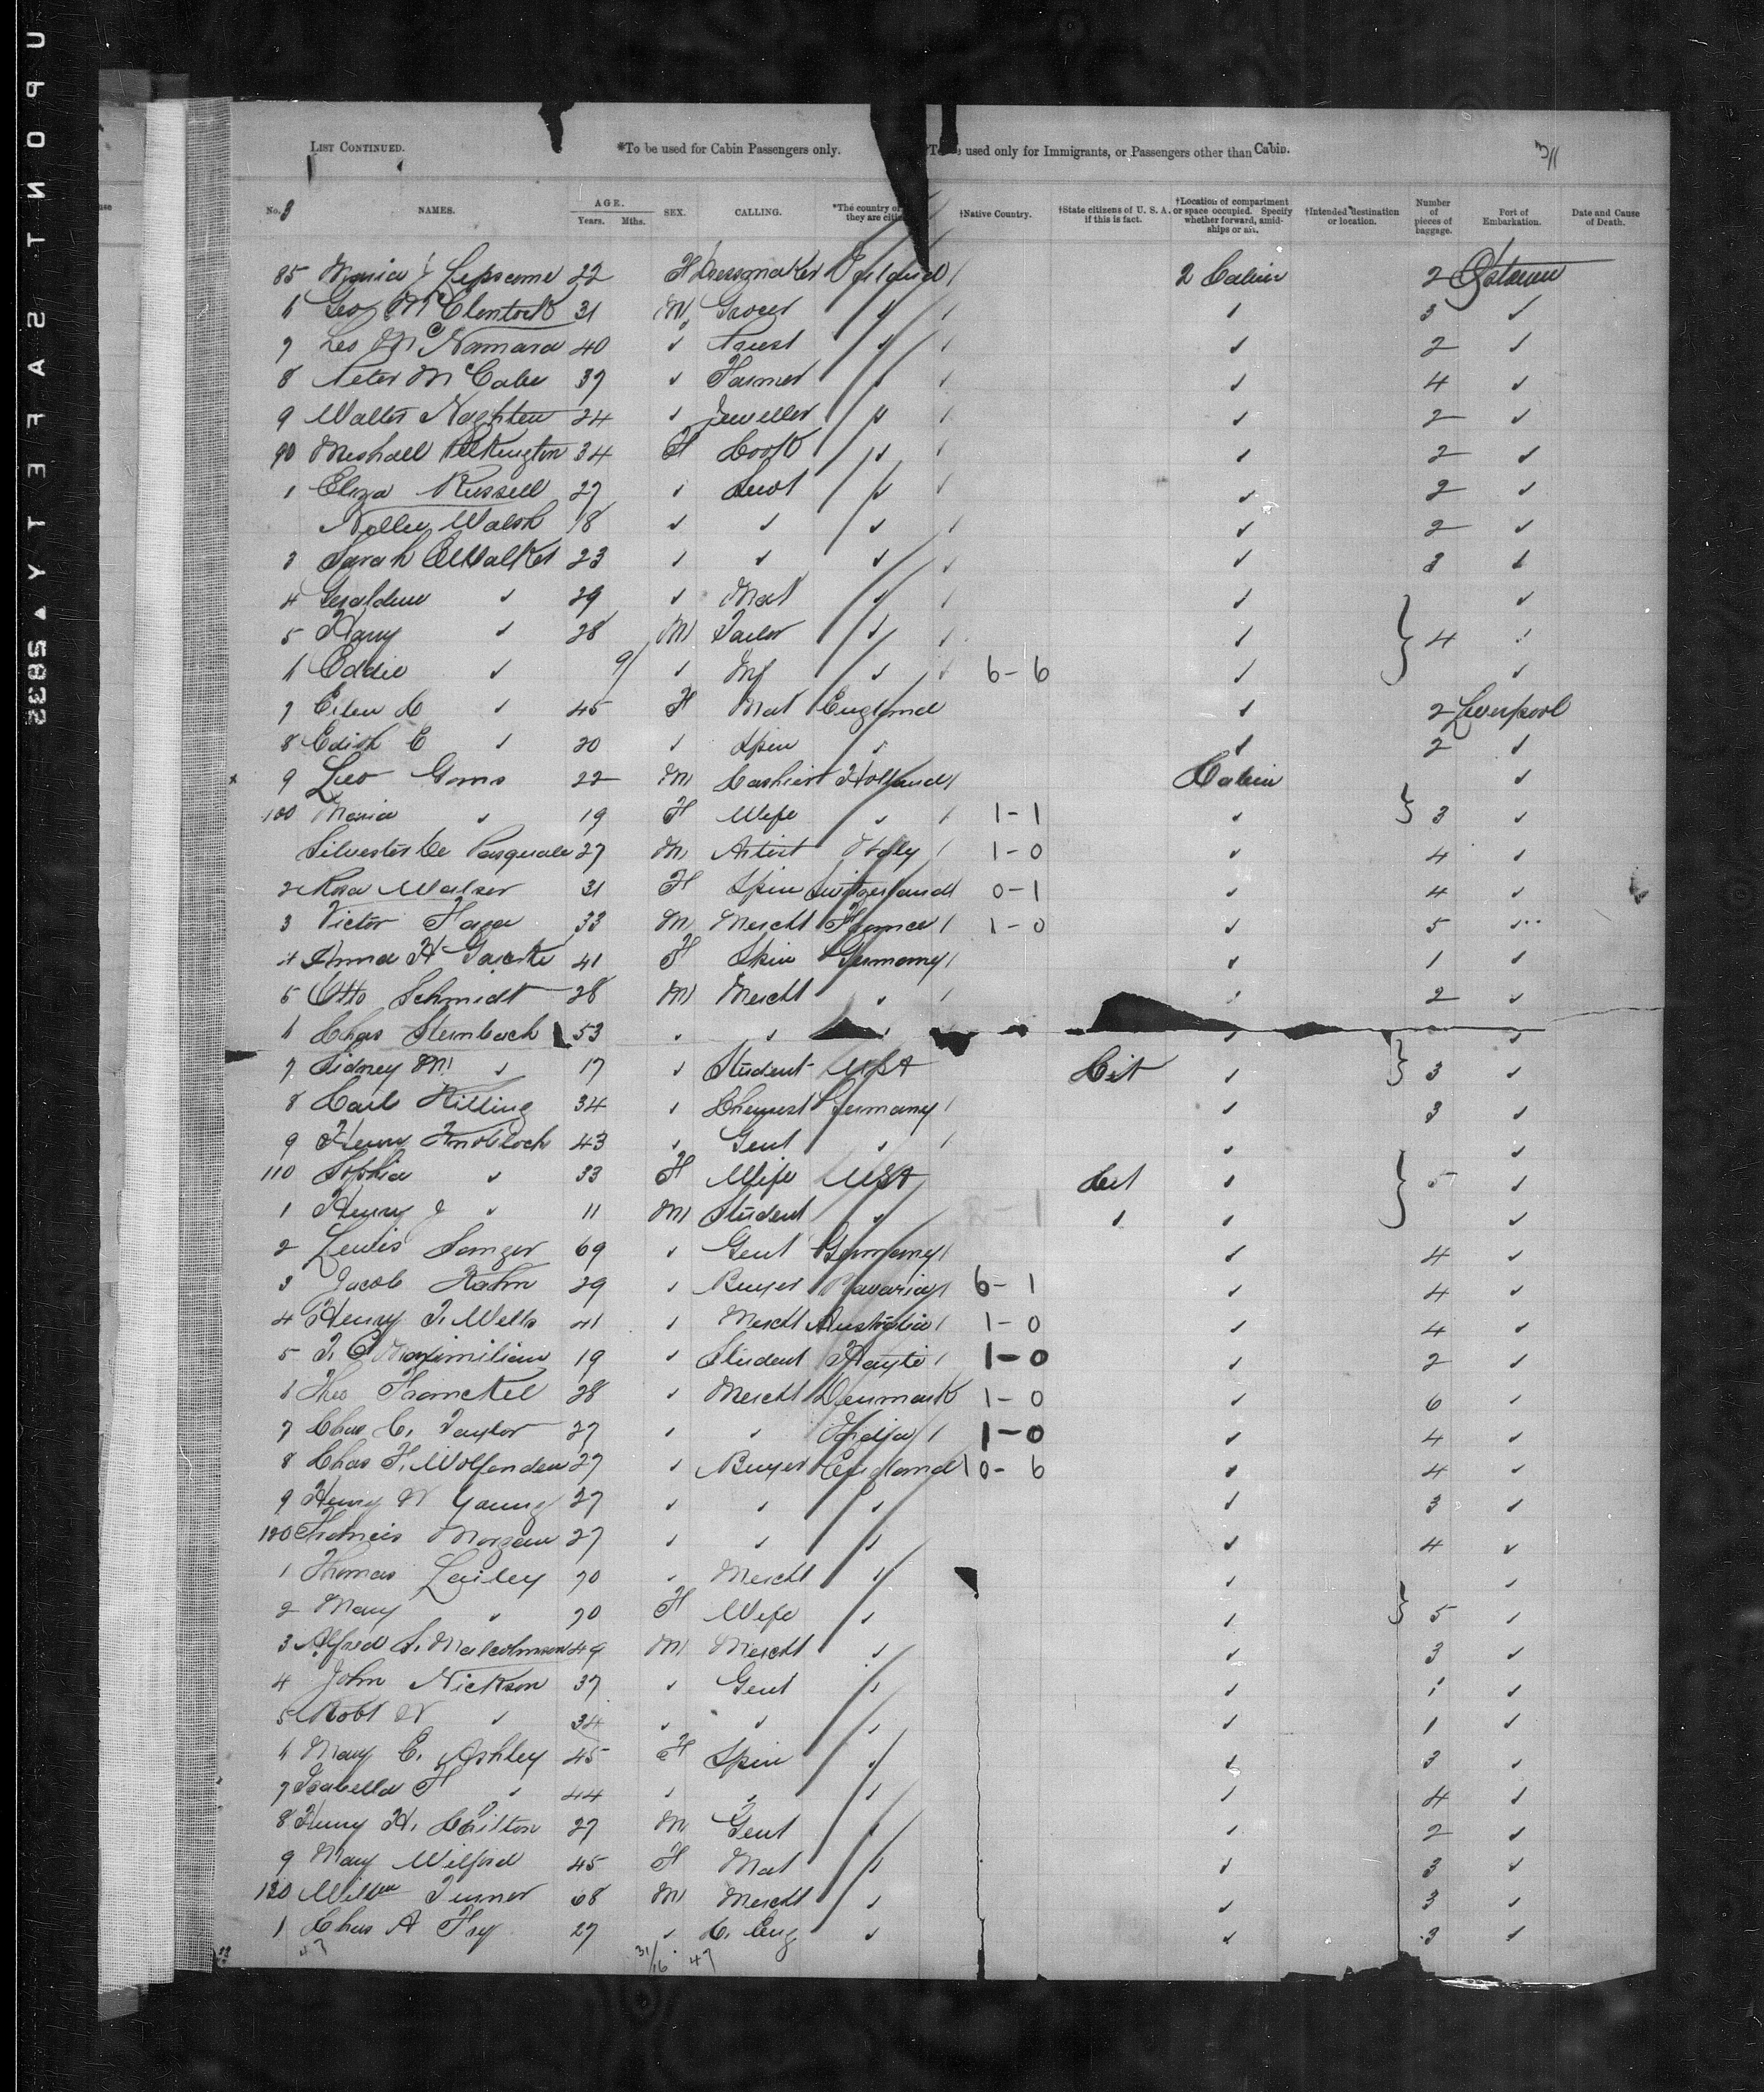 LIST CONTINUED. *To be used for Cabin Passengers only. used only for Immigrants, or Passengers other than Cabin.
No. NAMES. AGE. Years. Mths. SEX. CALLING. *The country of they are citiz †Native Country. †State citizens of U. S. A. if this is fact. †Location of compartment or space occupied. Specify whether forward, amidships or aft. †Intended destination or location. Number of pieces of baggage. Port of Embarkation. Date and Cause of Death.
85 Maria J Lipscome 22 F Dressmaker 2 Cabin 2
6 Geo McClintock 31 M Grocer ✓ ✓ 3 ✓
7 McNamara 40 ✓ Priest ✓ ✓ 2 ✓
8 Peter McCabe 37 ✓ Farmer ✓ ✓ 4 ✓
9 Walter Naghten 24 ✓ Jeweller ✓ ✓ 2 ✓
90 Pilkington 34 F Cook ✓ ✓ 2 ✓
1 Eliza Russell 27 ✓ Servt ✓ ✓ 2 ✓
Nellie Walsh 18 ✓ ✓ ✓ ✓ 2 ✓
3 Sarah Walker 23 ✓ ✓ ✓ ✓ 3 ✓
4 Geraldine ✓ 29 ✓ Mat ✓ ✓ ✓
5 Harry ✓ 28 M Tailor ✓ ✓ 4 ✓
6 Eddie ✓ 9/ ✓ Inf ✓ 6-6 ✓ ✓
7 Ellen C ✓ 45 F Mat England ✓ 2 Liverpool
8 Edith E ✓ 20 ✓ Spin ✓ ✓ 2 ✓
9 Leo Goms 22 M Cashier Holland Cabin ✓
100 Maria ✓ 19 F Wife ✓ 1-1 ✓ 3 ✓
Silvester De Pasquale 27 M Artist Italy 1-0 ✓ 4 ✓
2 Rosa Walser 31 F Spin Switzerland 0-1 ✓ 4 ✓
3 Victor 33 M Mercht France 1-0 ✓ 5 ✓
4 Anna H 41 F Spin Germany ✓ 1 ✓
5 Otto Schmidt 28 M Mercht ✓ ✓ 2 ✓
6 Chas Steinbach 53 ✓ ✓ ✓ ✓ ✓
7 Sidney M ✓ 17 ✓ Student USA Cit ✓ 3 ✓
8 Carl Killing 34 ✓ Chemist Germany ✓ 3 ✓
9 Henry Knobloch 43 ✓ Gent ✓ ✓ ✓
110 Sophia ✓ 33 F Wife USA Cit ✓ 5 ✓
1 Henry J ✓ 11 M Student ✓ ✓ ✓ ✓
2 Lewis Sanger 69 ✓ Gent Germany ✓ 4 ✓
3 Jacob Kahn 29 ✓ Buyer Bavaria 6-1 ✓ 4 ✓
4 Henry T. Wells 41 ✓ Mercht Australia 1-0 ✓ 4 ✓
5 T. C Maximilian 19 ✓ Student Hayti 1-0 ✓ 2 ✓
6 Theo Franckel 28 ✓ Mercht Denmark 1-0 ✓ 6 ✓
7 Chas C. Taylor 27 ✓ ✓ India 1-0 ✓ 4 ✓
8 Chas F. Wolfenden 27 ✓ Buyer England 10-6 ✓ 4 ✓
9 Henry W Young 27 ✓ ✓ ✓ ✓ 3 ✓
120 Francis Morgan 27 ✓ ✓ ✓ ✓ 4 ✓
1 Thomas Lailey 70 ✓ Mercht ✓ ✓ ✓
2 Mary ✓ 70 F Wife ✓ ✓ 5 ✓
3 Alfred S. Malcolmson 49 M Mercht ✓ ✓ 3 ✓
4 John Nickson 37 ✓ Gent ✓ ✓ 1 ✓
5 Robt W ✓ 34 ✓ ✓ ✓ ✓ 1 ✓
6 Mary E. Ashley 45 F Spin ✓ ✓ 3 ✓
7 Isabella F ✓ 44 ✓ ✓ ✓ ✓ 4 ✓
8 Henry H. Chilton 27 M Gent ✓ ✓ 2 ✓
9 Mary Wilford 45 F Mat ✓ ✓ 3 ✓
130 Willm Turner 68 M Mercht ✓ ✓ 3 ✓
1 Chas A Fry 27 ✓ C. Eng ✓ ✓ 3 ✓
47 31/16 47